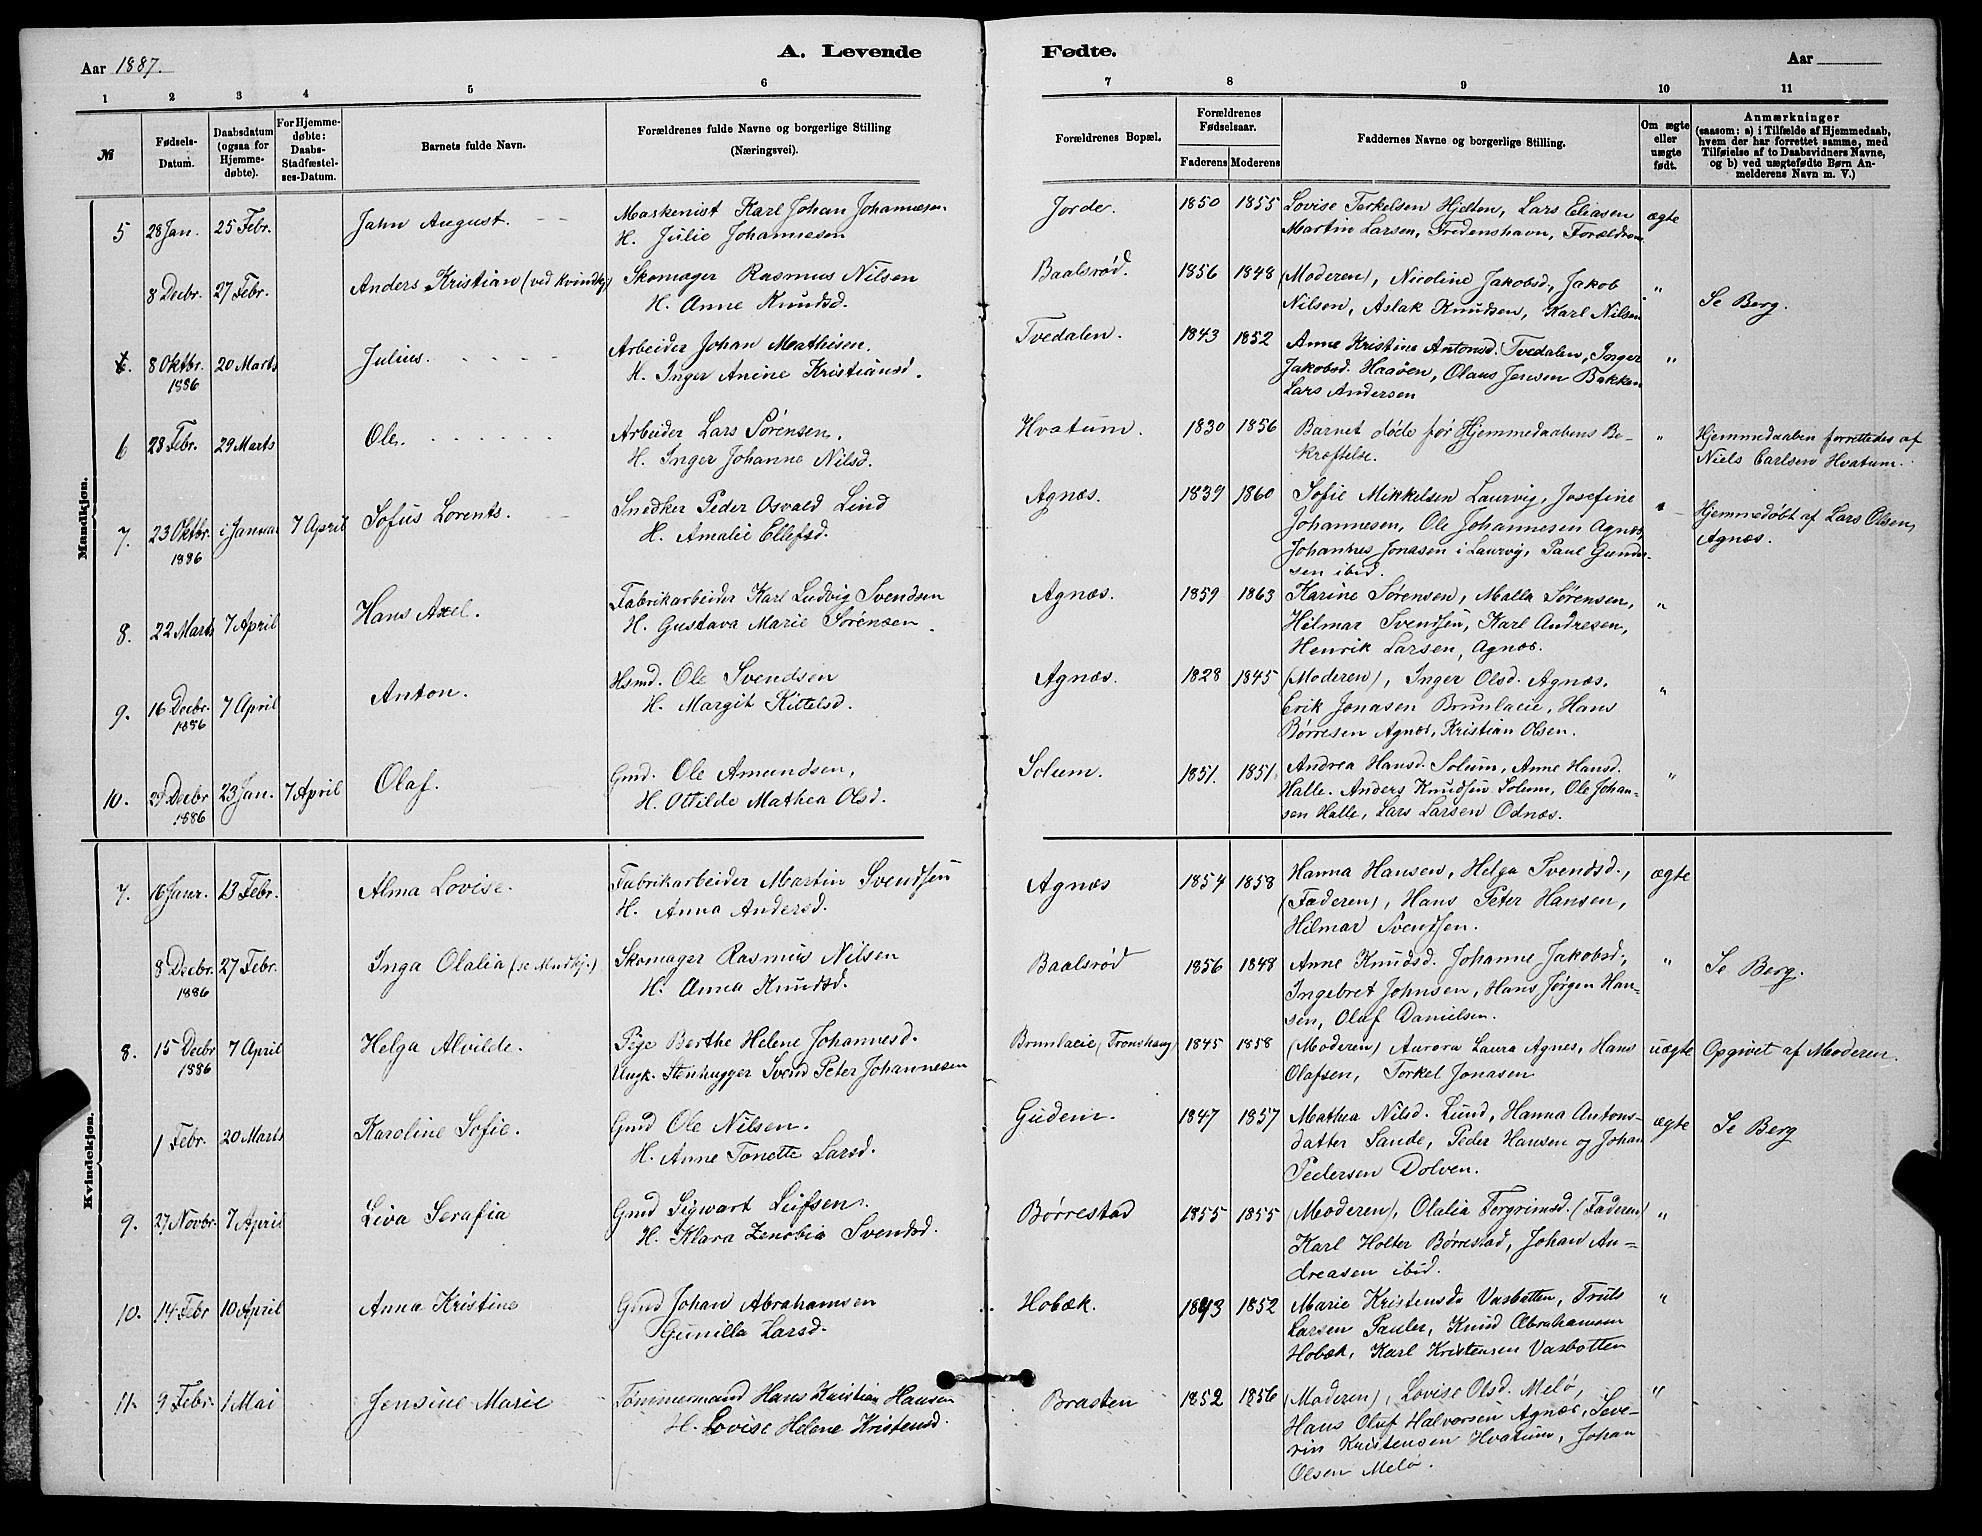 Aar 1887.
A. Levende
1 2 3 4 5 6
№
Fødsels-Datum.
Daabsdatum (ogsaa for Hjemme-døbte).
For Hjemme-døbte: Daabs-Stadfæstel-ses-Datum.
Barnets fulde Navn.
Forældrenes fulde Navne og borgerlige Stilling (Næringsvei).
Fødte.
Aar
7 8 9 10 11
Forældrenes Bopæl.
Forældrenes Fødselsaar.
Faderens Moderens
Faddernes Navne og borgerlige Stilling.
Om ægte eller uægte født.
Anmærkninger
(saasom: a) i Tilfælde af Hjemmedaab,
hvem der har forrettet samme, med
Tilføielse af to Daabsvidners Navne,
og b) ved uægtefødte Børn An-
melderens Navn m. V.)
Mandkjøn.
5 28 Jan. 25 Febr. Jahn August. Maskenist Karl Johan Johannesen
H. Julie Johannesen
Jorde. 1850 1855 Lovise Terkelsen Hjelten, Lars Eliasen ægte
Martin Larsen, Fredenshavn, Forældrene
8 Decbr. 27 Febr. Anders Kristian (ved Kvindkj) Skomager Rasmus Nilsen
H. Anne Knudsd.
Baalsrød. 1856 1848 (Moderen), Nicoline Jakobsd, Jakob "
Nilsen, Aslak Knudsen, Karl Nilsen Se Berg.
6. 8 Oktbr. 1886 20 Marts Julius. Arbeider Johan Mathisen.
H. Inger Anine Kristiansd.
Tvedalen. 1843 1852 Anne Kristine Antonsd. Tvedalen, Inger "
Jakobsd. Haaøen, Olaus Jensen Bakken
Lars Andersen
6 28 Febr. 29 Marts Ole. Arbeider Lars Sørensen.
H. Inger Johanne Nilsd.
Hvatum. 1830 1856 Barnet døde før Hjemmedaabens Be- "
kræftelse.
Hjemmedaaben forrettedes af
Niels Carlsen Hvatum.
7. 23 Oktbr. 1886 i Januar 7 April Sofus Lorents. Snedker Peder Osvald Lind
H. Amalie Ellefsd.
Agnæs. 1839 1860 Sofie Mikkelsen Laurvig, Josefine "
Johannesen, Ole Johannesen Agnæs,
Johannes Jonasen i Laurvig, Paul Gunder-
sen ibid.
Hjemmedøbt af Lars Olsen,
Agnæs.
8. 22 Marts 7 April Hans Axel. Fabrikarbeider Karl Ludvig Svendsen
H. Gustava Marie Sørensen.
Agnæs. 1859 1863 Karine Sørensen, Malla Sørensen, "
Hilmar Svendsen, Karl Andresen,
Henrik Larsen, Agnæs.
9. 16 Decbr. 1886 7 April Anton. Hsmd. Ole Svendsen
H. Margit Kittelsd.
Agnæs. 1828 1845 (Moderen), Inger Olsd. Agnæs, "
Erik Jonasen Brunlaeie, Hans
Børresen Agnæs, Kristian Olsen.
10. 29 Decbr 1886 23 Jan. 7 April Olaf. Gmd. Ole Amundsen,
H. Ottilde Mathea Olsd.
Solum. 1851. 1851 Andrea Hansd. Solum, Anne Hansd. "
Halle. Anders Knudsen Solum, Ole Johan-
sen Halle, Lars Larsen Odnæs.
Kvindekjøn.
7. 16 Janr. 13 Febr. Alma Lovise. Fabrikarbeider Martin Svendsen
H. Anna Andersd.
Agnæs 1854 1858 Hanna Hansen, Helga Svendsd., ægte
(Faderen), Hans Peter Hansen,
Hilmar Svendsen.
8 Decbr. 1886 27 Febr. Inga Olalia (se Mndkj.) Skomager Rasmus Nilsen
H. Anna Knudsd.
Baalsrød 1856 1848 Anne Knudsd. Johanne Jakobsd., " Se Berg.
Ingebret Johnsen, Hans Jørgen Han-
sen, Olaf Danielsen.
8. 15 Decbr 1886 7 April Helga Alvilde. Pige Berthe Helene Johannesd.
Ungk. Stenhugger Svend Peter Johannesen
Brunlaeie, (Tronshaug) 1845 1858 (Moderen) Aurora Laura Agnes, Hans uægte Opgivet af Moderen.
Olafsen, Torkel Jonasen
1 Febr. 20 Marts Karoline Sofie. Gmd Ole Nilsen.
H. Anne Tonette Larsd.
Gudem. 1847 1857 Mathea Nilsd. Lund, Hanna Antons- ægte Se Berg
datter Sande, Peder Hansen og Johan
Pedersen Dolven.
9. 27 Novbr. 7 April Liva Serafia Gmd Sigwart Leifsen.
H. Klara Zenobia Svendsd.
Børrestad 1855 1855 (Moderen), Olalia Torgrimsd. (Faderen) "
Karl Holter Børrestad, Johan An-
dreasen ibid.
10. 14 Febr 10 April Anna Kristine Gmd Johan Abrahamsen
Gunilla Larsd.
Hobæk. 1843 1852 Marie Kristensd. Vasbotten, Truls "
Larsen Pauler, Knud Abrahamsen
Hobæk, Karl Kristensen Vasbotten
11. 9 Febr. 1 Mai Jensine Marie Tømmermand Hans Kristian Hansen
H. Lovise Helene Kristensd.
Brasten 1852 1856 (Moderen), Lovise Olsd. Melø, "
Hans Oluf Halvorsen Agnæs, Seve-
rin Kristensen Hvatum, Johan
Olsen Melø.